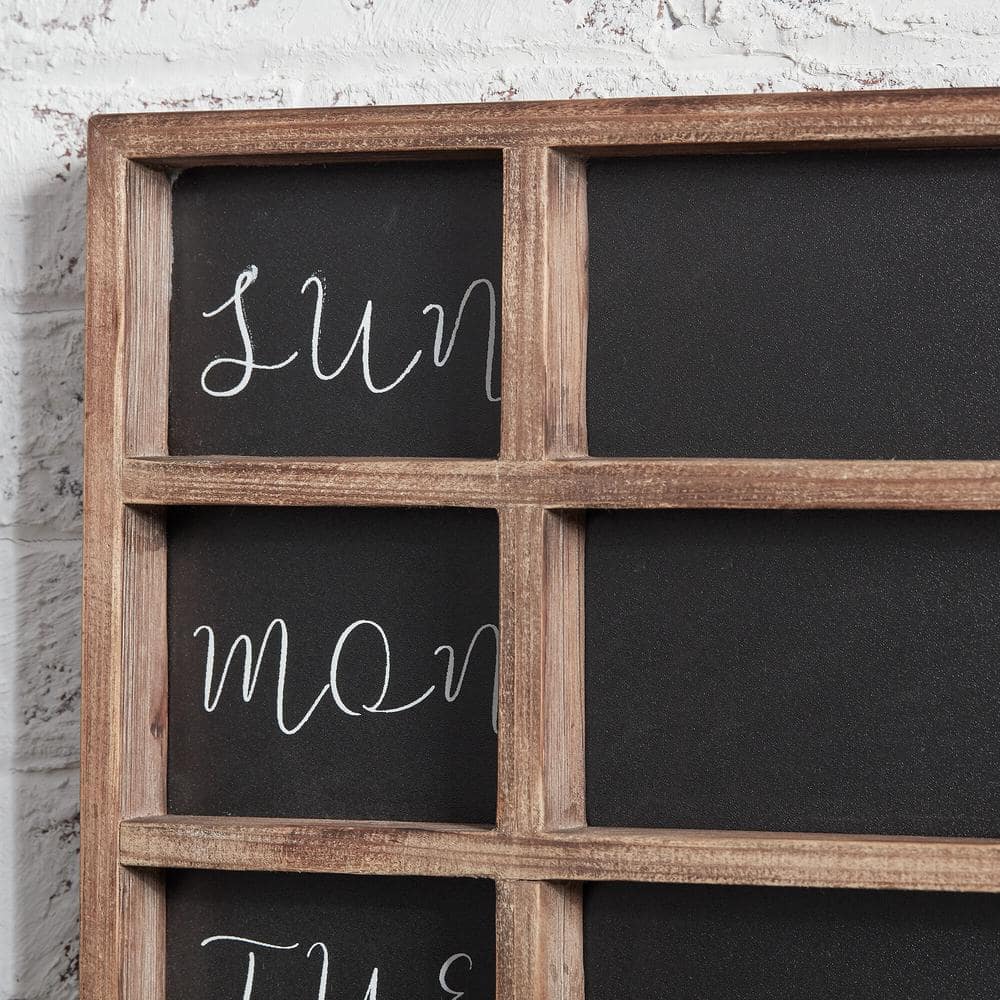 SUN
MON
TUE